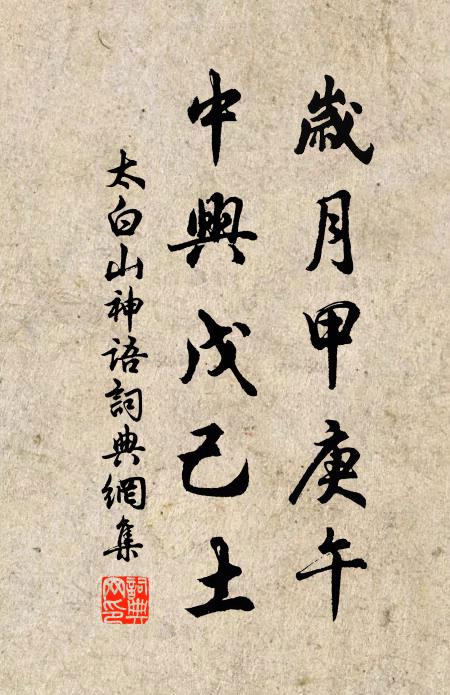 歲月甲庚午
中興戊己土
太白山神語詞典網集
詞典網印